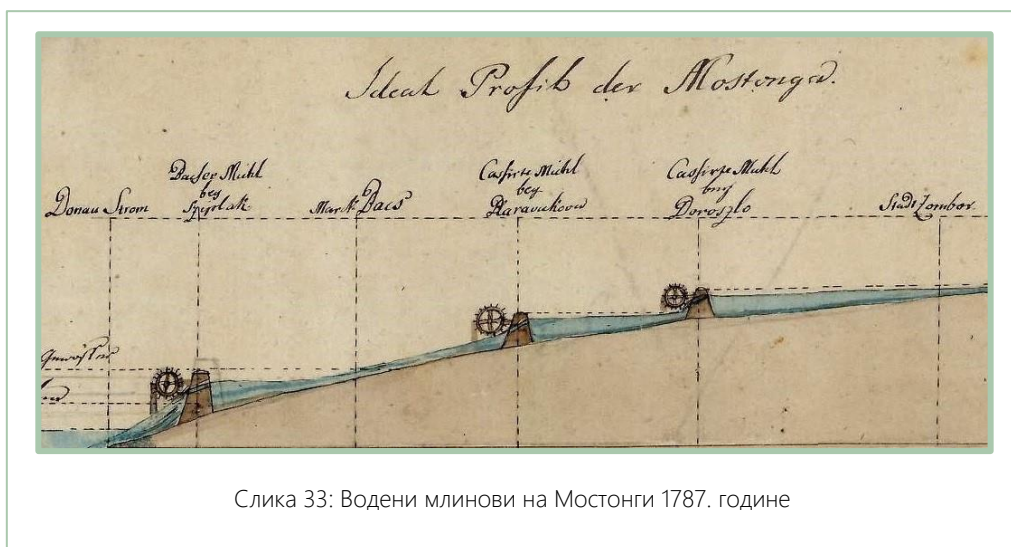 Ideal Profil der Mostonga.
Donau Strom
Bacser Mühl
bey
Markt Bacs
Cassirte Mühl
bey
Karavukova
Cassirte Mühl
bey
Doroszlo
Stadt Zombor
Слика 33: Водени млинови на Мостонги 1787. године